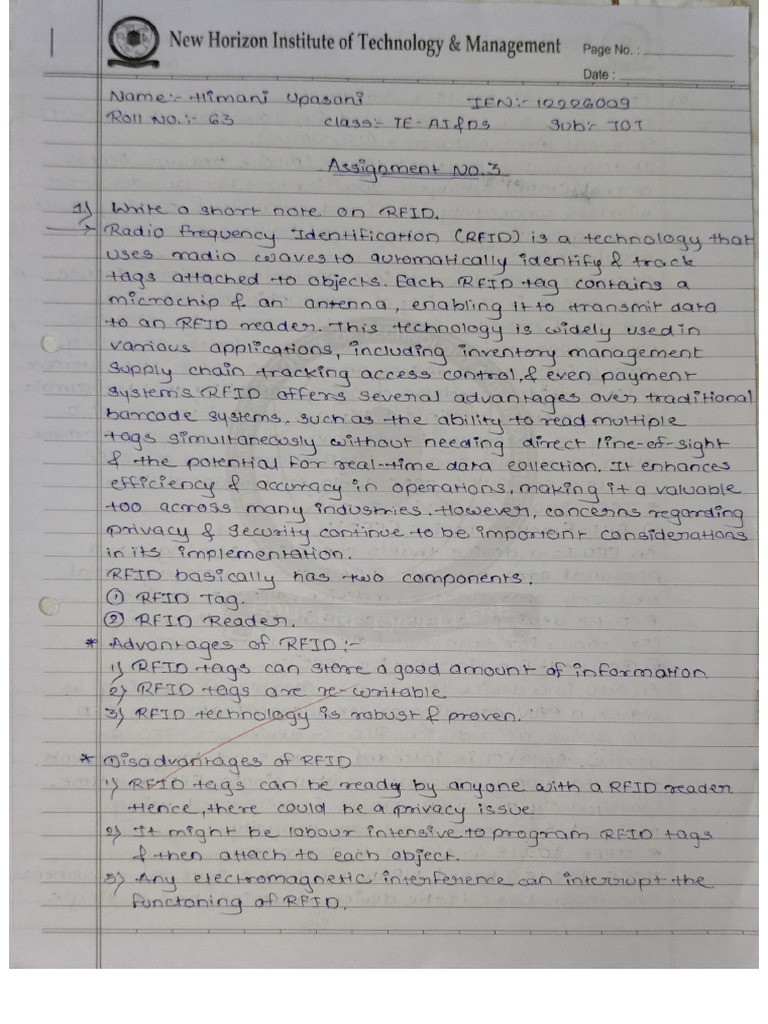 New Horizon Institute of Technology & Management
Page No. :
Date :
Name:- Himani Upasani IEN:- 12226009
Roll No.:- 63 Class:- TE-AI&DS Sub:- IOT
Assignment No.3
1) Write a short note on RFID.
→ Radio Frequency Identification (RFID) is a technology that
uses radio waves to automatically identify & track
tags attached to objects. Each RFID tag contains a
microchip & an antenna, enabling it to transmit data
to an RFID reader. This technology is widely used in
various applications, including inventory management
supply chain tracking access control,& even payment
system's RFID offers several advantages over traditional
barcode systems. such as the ability to read multiple
tags simultaneously without needing direct line-of-sight
& the potential for real-time data collection. It enhances
efficiency & accuracy in operations, making it a valuable
too across many industries. However, concerns regarding
privacy & security continue to be important considerations
in its implementation.
RFID basically has two components.
① RFID Tag.
② RFID Reader.
* Advantages of RFID :-
1) RFID tags can store a good amount of information
2) RFID tags are re-writable.
3) RFID technology is robust & proven.
* Disadvantages of RFID
1) RFID tags can be ready by anyone with a RFID reader
Hence, there could be a privacy issue.
2) It might be labour intensive to program RFID tags
& then attach to each object.
3) Any electromagnetic interference can interrupt the
functoning of RFID.